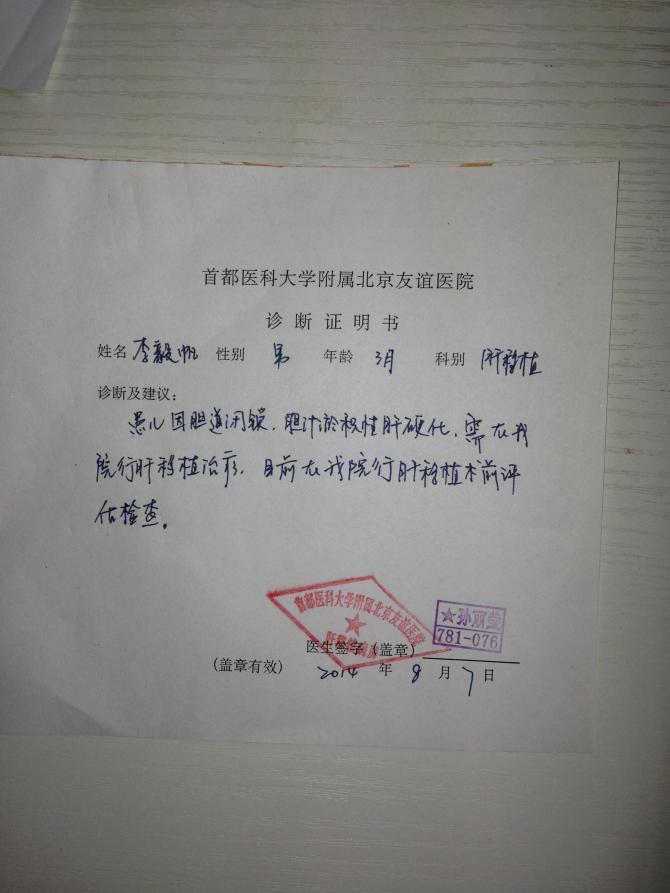 首都医科大学附属北京友谊医院
诊断证明书
姓名 李毅帆 性别 男 年龄 3月 科别 肝移植
诊断及建议：
患儿因胆道闭锁、胆汁淤积性肝硬化，需在我
院行肝移植治疗，目前在我院行肝移植术前评
估检查。
首都医科大学附属北京友谊医院
★孙丽莹
781-076
医生签字（盖章）
（盖章有效） 2014 年 8 月 7 日